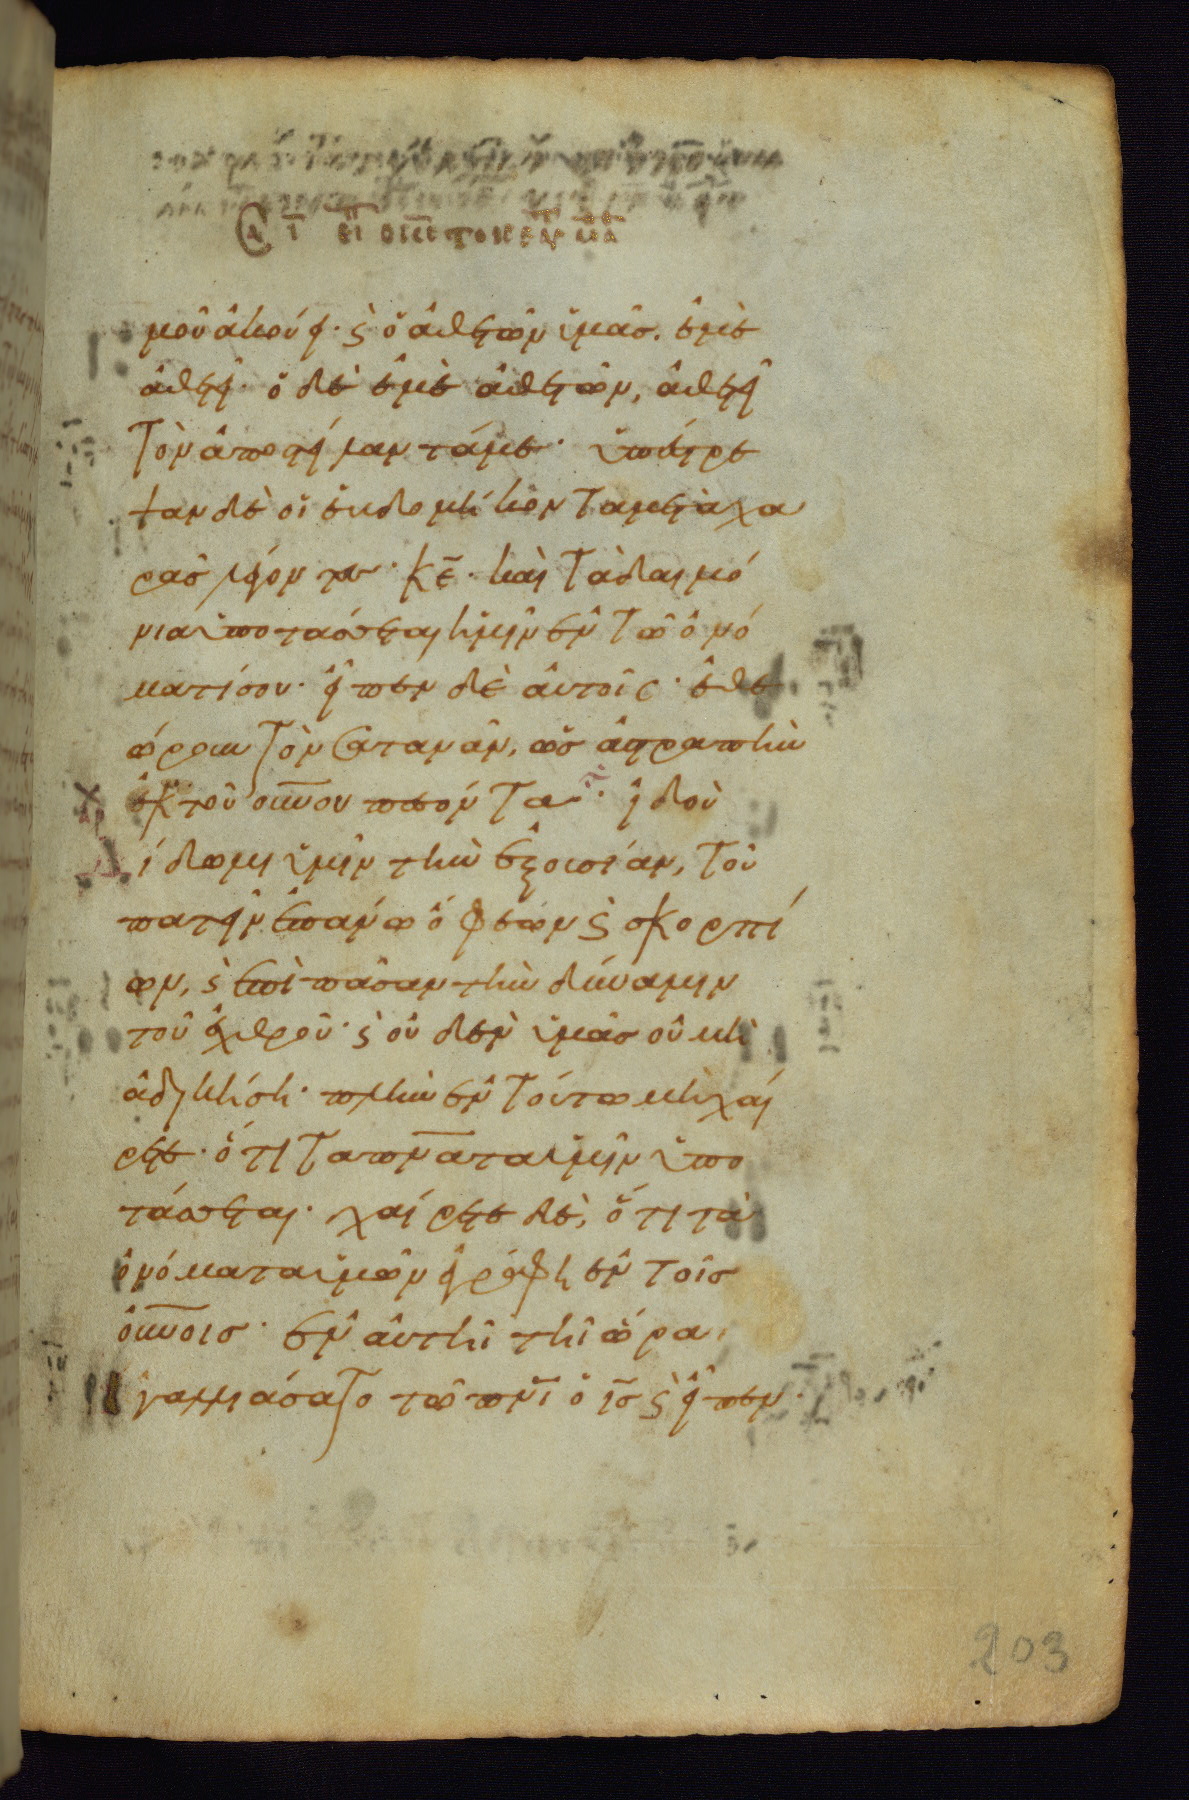 μοῦ ἀκούει· ϛ ὁ ἀθετῶν ὑμᾶσ. ἐμὲ
ἀθετεῖ· ὁ δὲ ἐμὲ ἀθετῶν, ἀθετεῖ
τὸν ἀποστείλαντά με· ὑπέστρε
ψαν δὲ οἱ ἑβδομήκοντα μετὰ χα
ρᾶσ λέγοντες· κ̅ε̅· καὶ τὰ δαιμό
νια ὑποτάσσεται ἡμῖν ἐν τῶ ὀνό
ματί σου· εἶπεν δὲ αὐτοῖς· ἐθε
ώρουν τὸν σατανᾶν, ὡσ ἀστραπὴν
ἐκ τοῦ ο̅υ̅ν̅ου πεσόντα· ἰδοὺ
δίδωμι ὑμῖν τὴν ἐξουσίαν, τοῦ
πατεῖν ἐπάνω ὄφεων ϛ σκορπί
ων, ϛ ἐπὶ πᾶσαν τὴν δύναμιν
τοῦ ἐχθροῦ· ϛ οὐδὲν ὑμᾶσ οὐ μὴ
ἀδικήση· πλὴν ἐν τούτω μὴ χαί
ρετε· ὅτι τα π̅ν̅ατα ὑμῖν ὑπο
τάσσεται· χαίρετε δὲ, ὅτι τὰ
ὀνόματα ὑμῶν ἐγράφη ἐν τοῖσ
ο̅υ̅ν̅οισ· ἐν αὐτῆ τῆ ὥρα
ἠγαλλιάσατο τῶ π̅ν̅ι̅ ὁ ι̅σ̅ ϛ εἶπεν·
203